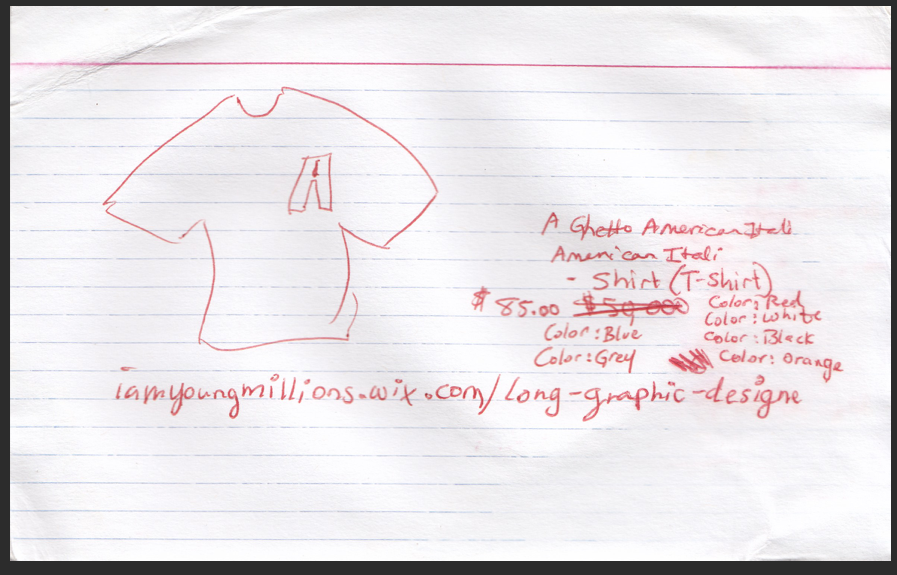 A
A Ghetto American Itali
American Itali
- Shirt (T-Shirt)
$85.00 $59,000
Color: Red
Color: White
Color: Blue
Color: Black
Color: Grey
Color: Orange
iamyoungmillions.wix.com/long-graphic-designe